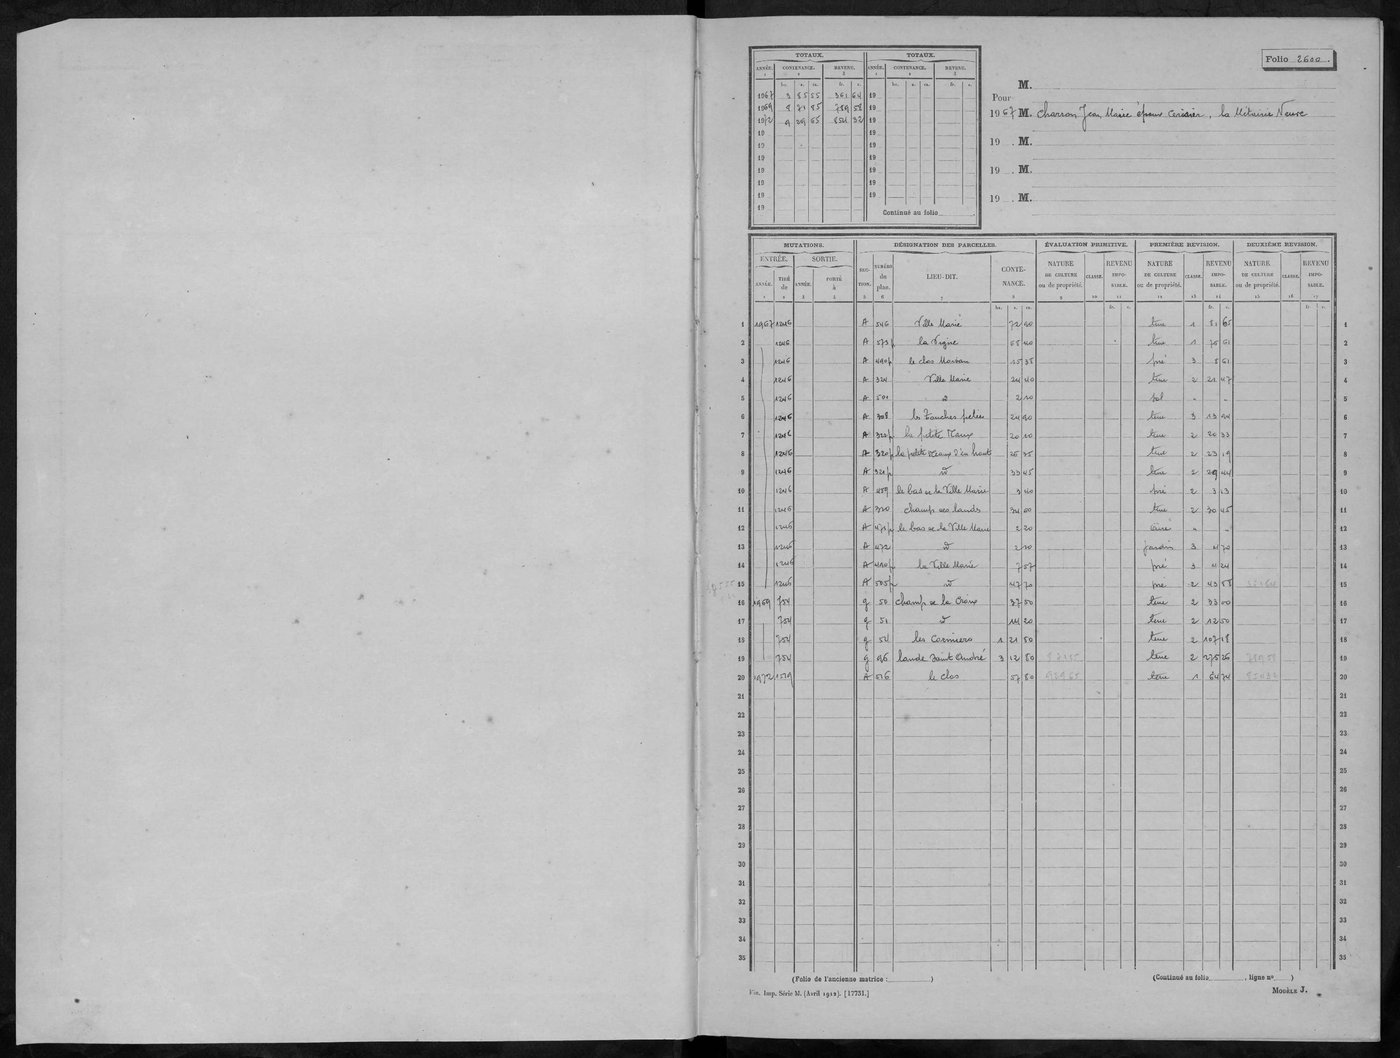 Folio 2600.
TOTAUX. TOTAUX.
ANNÉE. CONTENANCE. REVENU. ANNÉE. CONTENANCE. REVENU.
1 2 3 1 2 3
ha. a. ca. fr. c. ha. a. ca. fr. c.
1967 3 85 55 361 64 19
1969 8 71 85 789 58 19
1972 9 29 65 854 32 19
19 19
19 19
19 19
19 19
19 19
19 19
19 Continué au folio
M.
Pour
1967 M. Charron Jean Marie époux Cerisier, la Métairie Neuve
19 . M.
19 . M.
19 . M.
MUTATIONS. DÉSIGNATION DES PARCELLES. ÉVALUATION PRIMITIVE. PREMIÈRE REVISION. DEUXIÈME REVISION.
ENTRÉE. SORTIE. SECTION. NUMÉRO du plan. LIEU-DIT. CONTENANCE. NATURE DE CULTURE ou de propriété. CLASSE. REVENU IMPOSABLE. NATURE DE CULTURE ou de propriété. CLASSE. REVENU IMPOSABLE. NATURE DE CULTURE ou de propriété. CLASSE. REVENU IMPOSABLE.
ANNÉE. TIRÉ de ANNÉE. PORTÉ à
ha. a. ca. fr. c. fr. c. fr. c.
1 1967 1246 A 546 Ville Marie 72 60 terre 1 81 65 1
2 1246 A 573p la Vigne terre 1 2
3 1246 A 490p le clos 15 35 pré 3 8 61 3
4 1246 A 324 Ville Marie 24 40 terre 2 21 47 4
5 1246 A 501 d° 2 10 sol " " 5
6 1246 A 308 24 90 terre 3 13 94 6
7 1246 A la petite 20 10 terre 2 20 33 7
8 1246 A 320p la petite d'en haut terre 2 23 19 8
9 1246 A 321p d° 33 45 terre 2 29 44 9
10 1246 A 489 le bas de la Ville Marie 3 40 pré 2 3 13 10
11 1246 A 320 champ des lands 34 60 terre 2 30 45 11
12 1246 A 471p le bas de la Ville Marie 2 20 " " 12
13 1246 A 472 d° 2 10 jardin 3 4 70 13
14 1246 A 410p la Ville Marie 7 57 pré 3 4 24 14
15 1246 A 505p d° 47 70 pré 2 43 88 15
16 1969 754 g 50 champ de la Croix 37 50 terre 2 33 00 16
17 754 g 51 d° 14 20 terre 2 12 50 17
18 754 g 54 les Cormiers 1 21 80 terre 2 107 18 18
19 754 g 96 lande Saint André 3 12 80 87185 terre 2 275 26 78958 19
20 1972 1519 A 516 le clos 57 80 92965 terre 1 64 74 85432 20
21 21
22 22
23 23
24 24
25 25
26 26
27 27
28 28
29 29
30 30
31 31
32 32
33 33
34 34
35 35
(Folio de l'ancienne matrice : ) (Continué au folio , ligne n° )
Fin. Imp. Série M. (Avril 1912). [17731.] MODÈLE J.